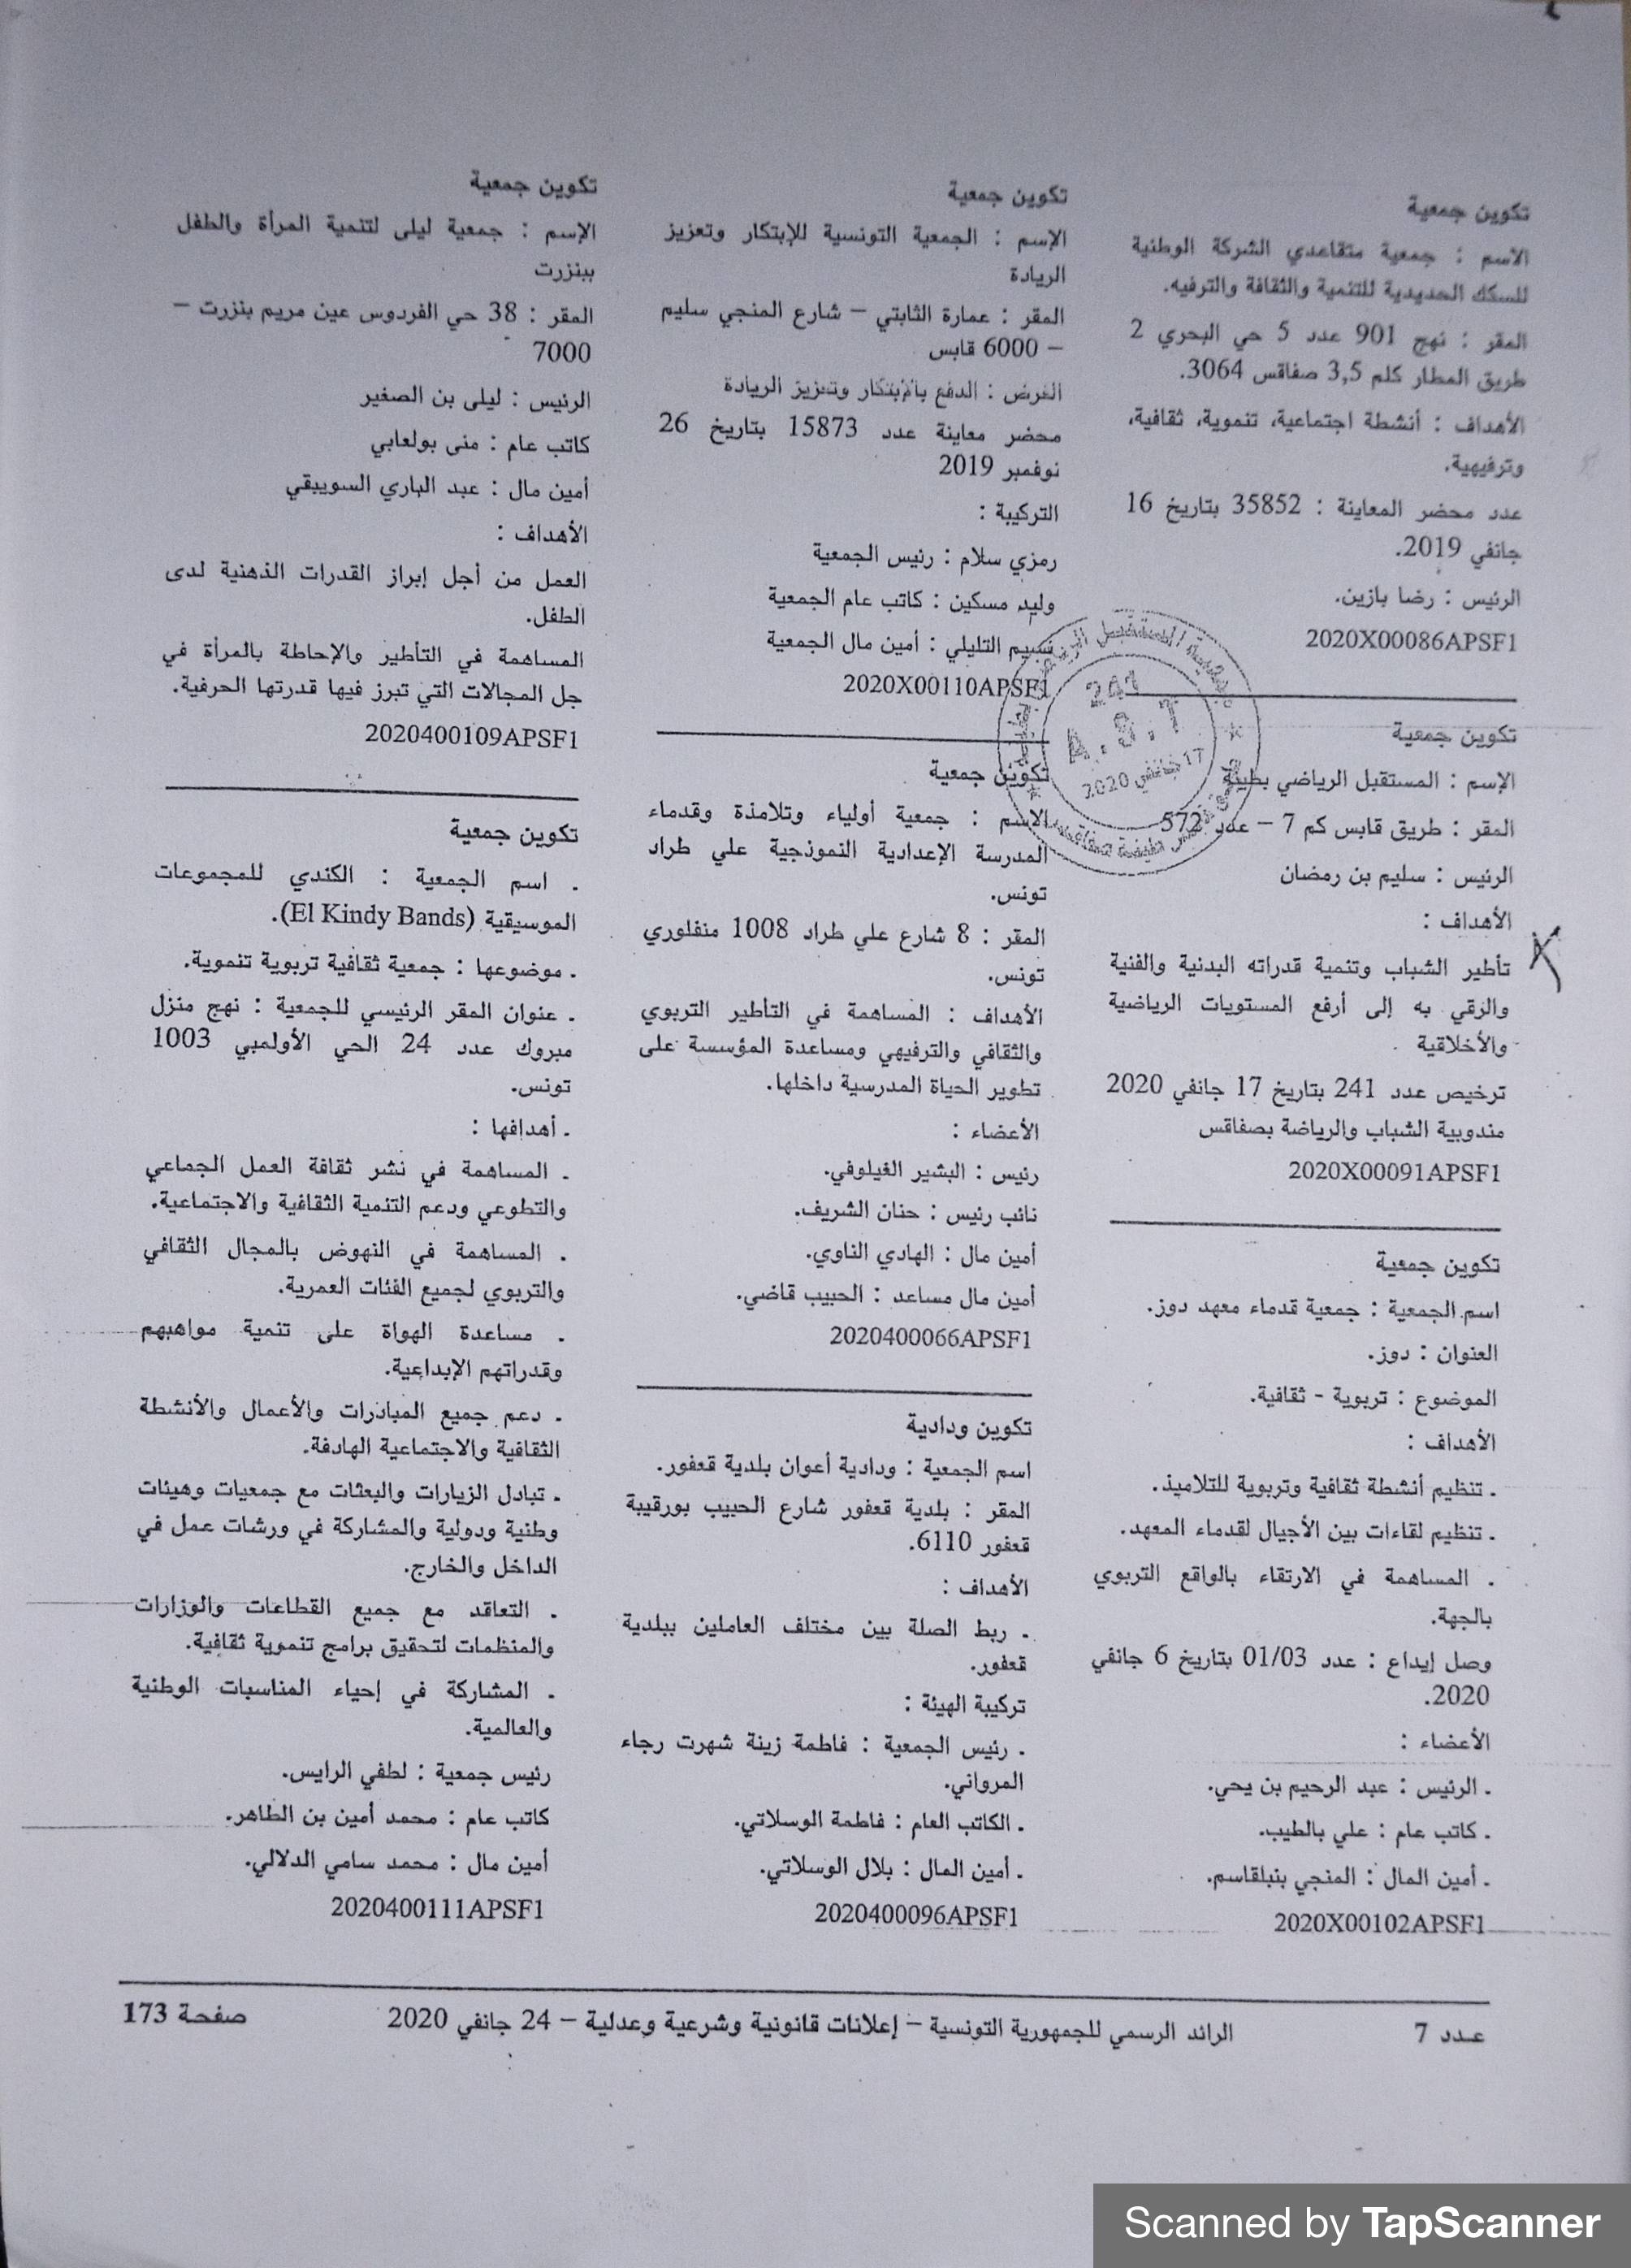 تكوين جمعية
الاسم : جمعية متقاعدي الشركة الوطنية
للسكك الحديدية للتنمية والثقافة والترفيه.
المقر : نهج 901 عدد 5 حي البحري 2
طريق المطار كلم 3,5 صفاقس 3064.
الأهداف : أنشطة اجتماعية، تنموية، ثقافية،
وترفيهية.
عدد محضر المعاينة : 35852 بتاريخ 16
جانفي 2019.
الرئيس : رضا بازين.
2020X00086APSF1
تكوين جمعية
الإسم : المستقبل الرياضي بطينة
المقر : طريق قابس كم 7 – عدد 572
الرئيس : سليم بن رمضان
الأهداف :
تأطير الشباب وتنمية قدراته البدنية والفنية
والرقي به إلى أرفع المستويات الرياضية
والأخلاقية
ترخيص عدد 241 بتاريخ 17 جانفي 2020
مندوبية الشباب والرياضة بصفاقس
2020X00091APSF1
تكوين جمعية
اسم الجمعية : جمعية قدماء معهد دوز.
العنوان : دوز.
الموضوع : تربوية - ثقافية.
الأهداف :
. تنظيم أنشطة ثقافية وتربوية للتلاميذ.
. تنظيم لقاءات بين الأجيال لقدماء المعهد.
. المساهمة في الارتقاء بالواقع التربوي
بالجهة.
وصل إيداع : عدد 01/03 بتاريخ 6 جانفي
2020.
الأعضاء :
. الرئيس : عبد الرحيم بن يحي.
. كاتب عام : علي بالطيب.
. أمين المال : المنجي بنبلقاسم.
2020X00102APSF1
تكوين جمعية
الإسم : الجمعية التونسية للإبتكار وتعزيز
الريادة
المقر : عمارة الثابتي – شارع المنجي سليم
– 6000 قابس
الغرض : الدفع بالإبتكار وتعزيز الريادة
محضر معاينة عدد 15873 بتاريخ 26
نوفمبر 2019
التركيبة :
رمزي سلام : رئيس الجمعية
وليد مسكين : كاتب عام الجمعية
نسيم التليلي : أمين مال الجمعية
2020X00110APSF1
241
A.S.T
17 جانفي 2020
تكوين جمعية
الاسم : جمعية أولياء وتلامذة وقدماء
المدرسة الإعدادية النموذجية علي طراد
تونس.
المقر : 8 شارع علي طراد 1008 منفلوري
تونس.
الأهداف : المساهمة في التأطير التربوي
والثقافي والترفيهي ومساعدة المؤسسة على
تطوير الحياة المدرسية داخلها.
الأعضاء :
رئيس : البشير الغيلوفي.
نائب رئيس : حنان الشريف.
أمين مال : الهادي الناوي.
أمين مال مساعد : الحبيب قاضي.
2020400066APSF1
تكوين ودادية
اسم الجمعية : ودادية أعوان بلدية قعفور.
المقر : بلدية قعفور شارع الحبيب بورقيبة
قعفور 6110.
الأهداف :
. ربط الصلة بين مختلف العاملين ببلدية
قعفور.
تركيبة الهيئة :
. رئيس الجمعية : فاطمة زينة شهرت رجاء
المرواني.
. الكاتب العام : فاطمة الوسلاتي.
. أمين المال : بلال الوسلاتي.
2020400096APSF1
تكوين جمعية
الإسم : جمعية ليلى لتنمية المرأة والطفل
ببنزرت
المقر : 38 حي الفردوس عين مريم بنزرت –
7000
الرئيس : ليلى بن الصغير
كاتب عام : منى بولعابي
أمين مال : عبد الباري السويبقي
الأهداف :
العمل من أجل إبراز القدرات الذهنية لدى
الطفل.
المساهمة في التأطير والإحاطة بالمرأة في
جل المجالات التي تبرز فيها قدرتها الحرفية.
2020400109APSF1
تكوين جمعية
. اسم الجمعية : الكندي للمجموعات
الموسيقية (El Kindy Bands).
. موضوعها : جمعية ثقافية تربوية تنموية.
. عنوان المقر الرئيسي للجمعية : نهج منزل
مبروك عدد 24 الحي الأولمبي 1003
تونس.
. أهدافها :
. المساهمة في نشر ثقافة العمل الجماعي
والتطوعي ودعم التنمية الثقافية والاجتماعية.
. المساهمة في النهوض بالمجال الثقافي
والتربوي لجميع الفئات العمرية.
. مساعدة الهواة على تنمية مواهبهم
وقدراتهم الإبداعية.
. دعم جميع المبادرات والأعمال والأنشطة
الثقافية والاجتماعية الهادفة.
. تبادل الزيارات والبعثات مع جمعيات وهيئات
وطنية ودولية والمشاركة في ورشات عمل في
الداخل والخارج.
. التعاقد مع جميع القطاعات والوزارات
والمنظمات لتحقيق برامج تنموية ثقافية.
. المشاركة في إحياء المناسبات الوطنية
والعالمية.
رئيس جمعية : لطفي الرايس.
كاتب عام : محمد أمين بن الطاهر.
أمين مال : محمد سامي الدلالي.
2020400111APSF1
عـدد 7
الرائد الرسمي للجمهورية التونسية – إعلانات قانونية وشرعية وعدلية – 24 جانفي 2020
صفحة 173
Scanned by TapScanner